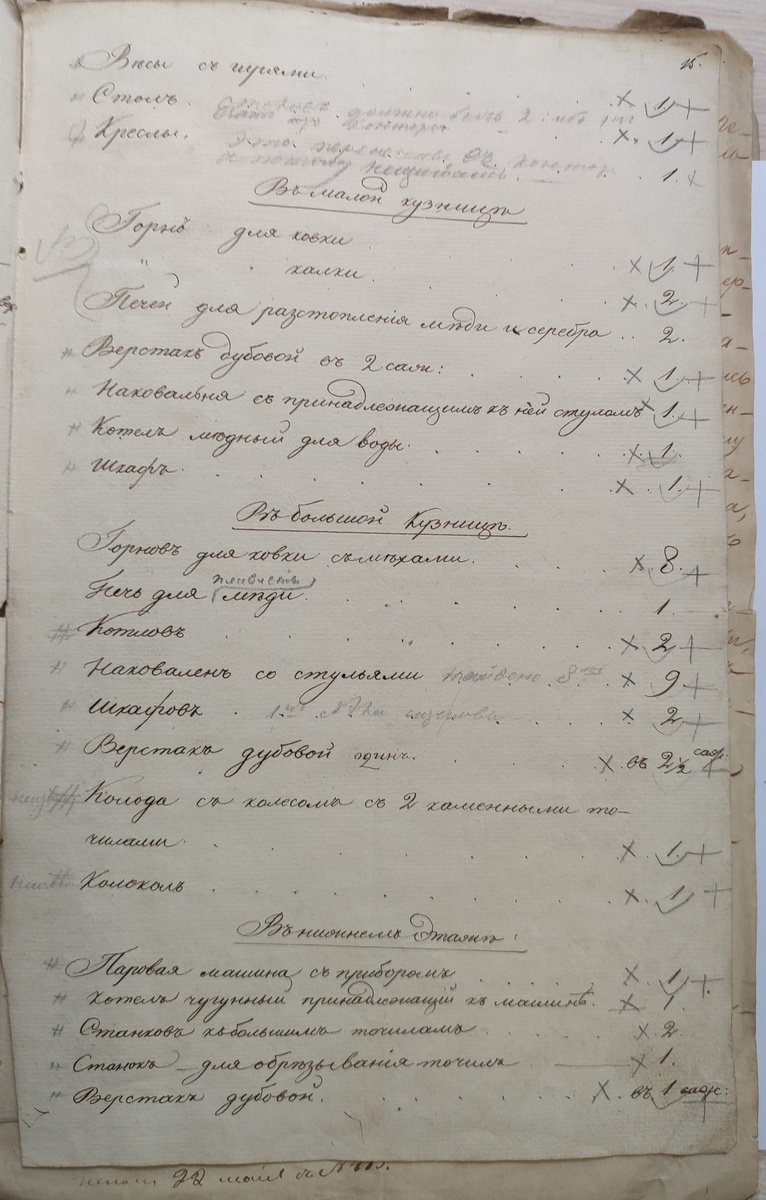 15.
Вѣсы съ гирями
Столъ. должно быть 2 × 1 +
Креслы. × 1 +
Это 1. ×
Въ малой кузницѣ
Горнъ для ковки
" " калки × 1 +
× 2. +
Печей для разстопленія мѣди и серебра .. 2.
# Верстакъ дубовой въ 2 саж: × 1 +
# Наковальня съ принадлежащимъ къ ней стуломъ × 1. +
# Котелъ мѣдный для воды. × 1.
# Шкафъ. × 1 +
Въ большой Кузницѣ.
Горновъ для ковки съ мѣхами. × 8. +
плавлести
Печь для мѣди. 1.
# Котловъ × 2 +
# Наковаленъ со стульями найдено 8 × 9 +
# Шкафовъ 1 × 2 +
# Верстакъ дубовой одинъ. × въ 2½ саж:
# Колода съ колесомъ съ 2 каменными то-
чилами × 1 +
# Колоколъ × 1 +
Въ нижнемъ Этажѣ:
# Паровая машина съ приборомъ × 1 +
# Котелъ чугунный принадлежащій къ машинѣ. × 1
# Станковъ къ большимъ точиламъ × 2.
# Станокъ для обрѣзыванія точилъ × 1.
# Верстакъ дубовой. × въ 1 саж:
22 мая